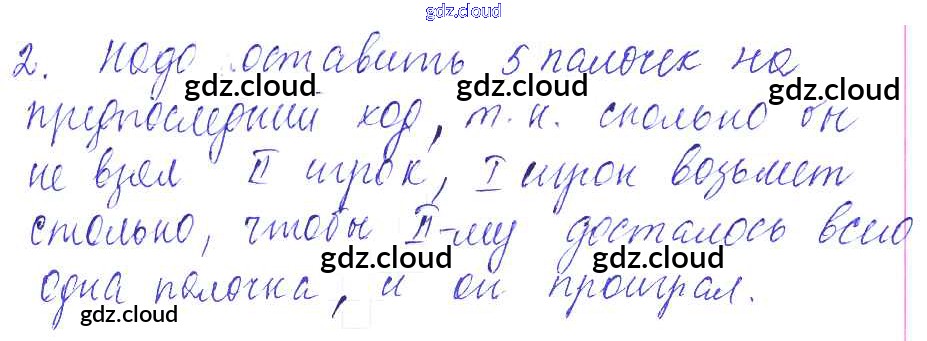 gdz.cloud
2. Надо оставить 5 палочек на
gdz.cloud gdz.cloud gdz.cloud
предпоследний ход, т.к. сколько бы
не взял II игрок, I игрок возьмет
gdz.cloud gdz.cloud gdz.cloud
столько, чтобы II-му досталось всего
gdz.cloud gdz.cloud
одна палочка, и он проиграл.
gdz.cloud gdz.cloud